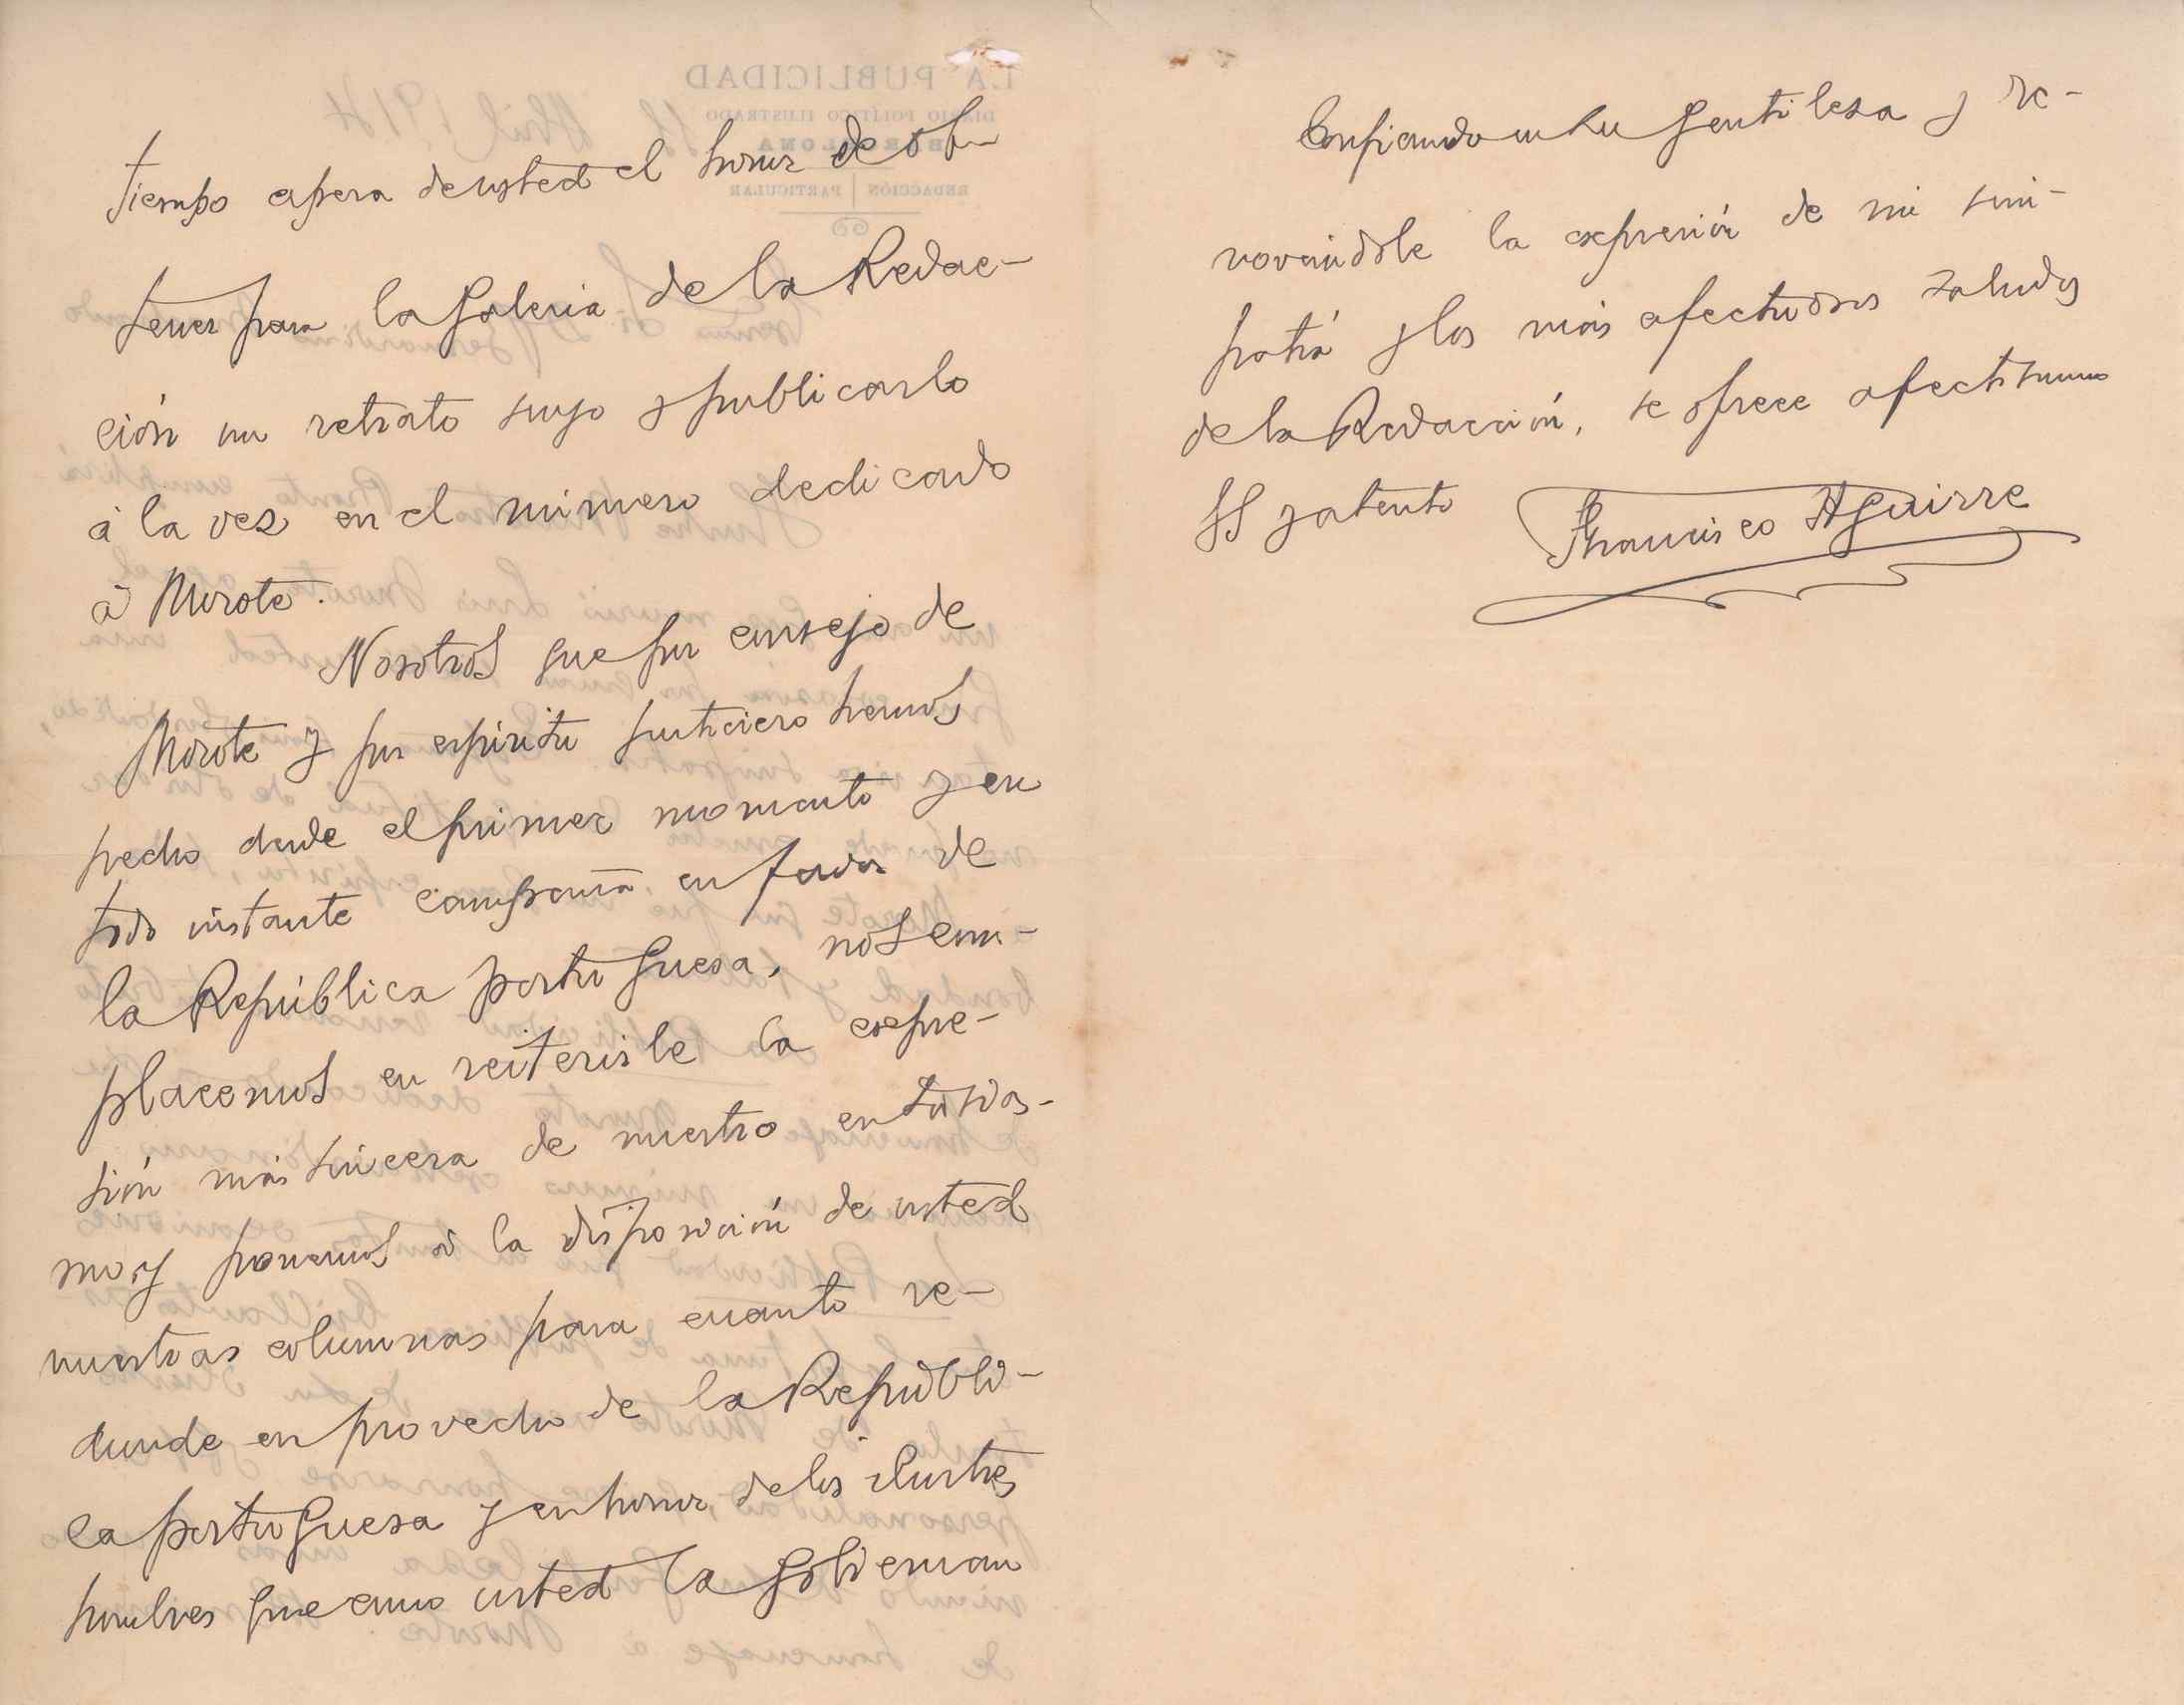 tiempo espera de usted el honor de ob-
tener para la galeria de la Redac-
ción un retrato suyo y publicarlo
á la vez en el número dedicado
á Morote.
Nosotros que por consejo de
Morote y por espiritu justiciero hemos
hecho desde el primer momento y en
todo instante campaña en favor de
la República portuguesa, nos com-
placemos en reiterisle la expre-
sión más sincera de nuestro entusias-
mo y ponemos á la disposición de usted
nuestras columnas para cuanto re-
dunde en provecho de la Repúbli-
ca portuguesa y en honor de los ilustres
hombres que como usted la gobiernan
Confiando en su gentileza y re-
novandole la expresión de mi sim-
patía y los más afectuosos saludos
de la Redacción, se ofrece afectisimo
SS y atento Francisco Aguirre